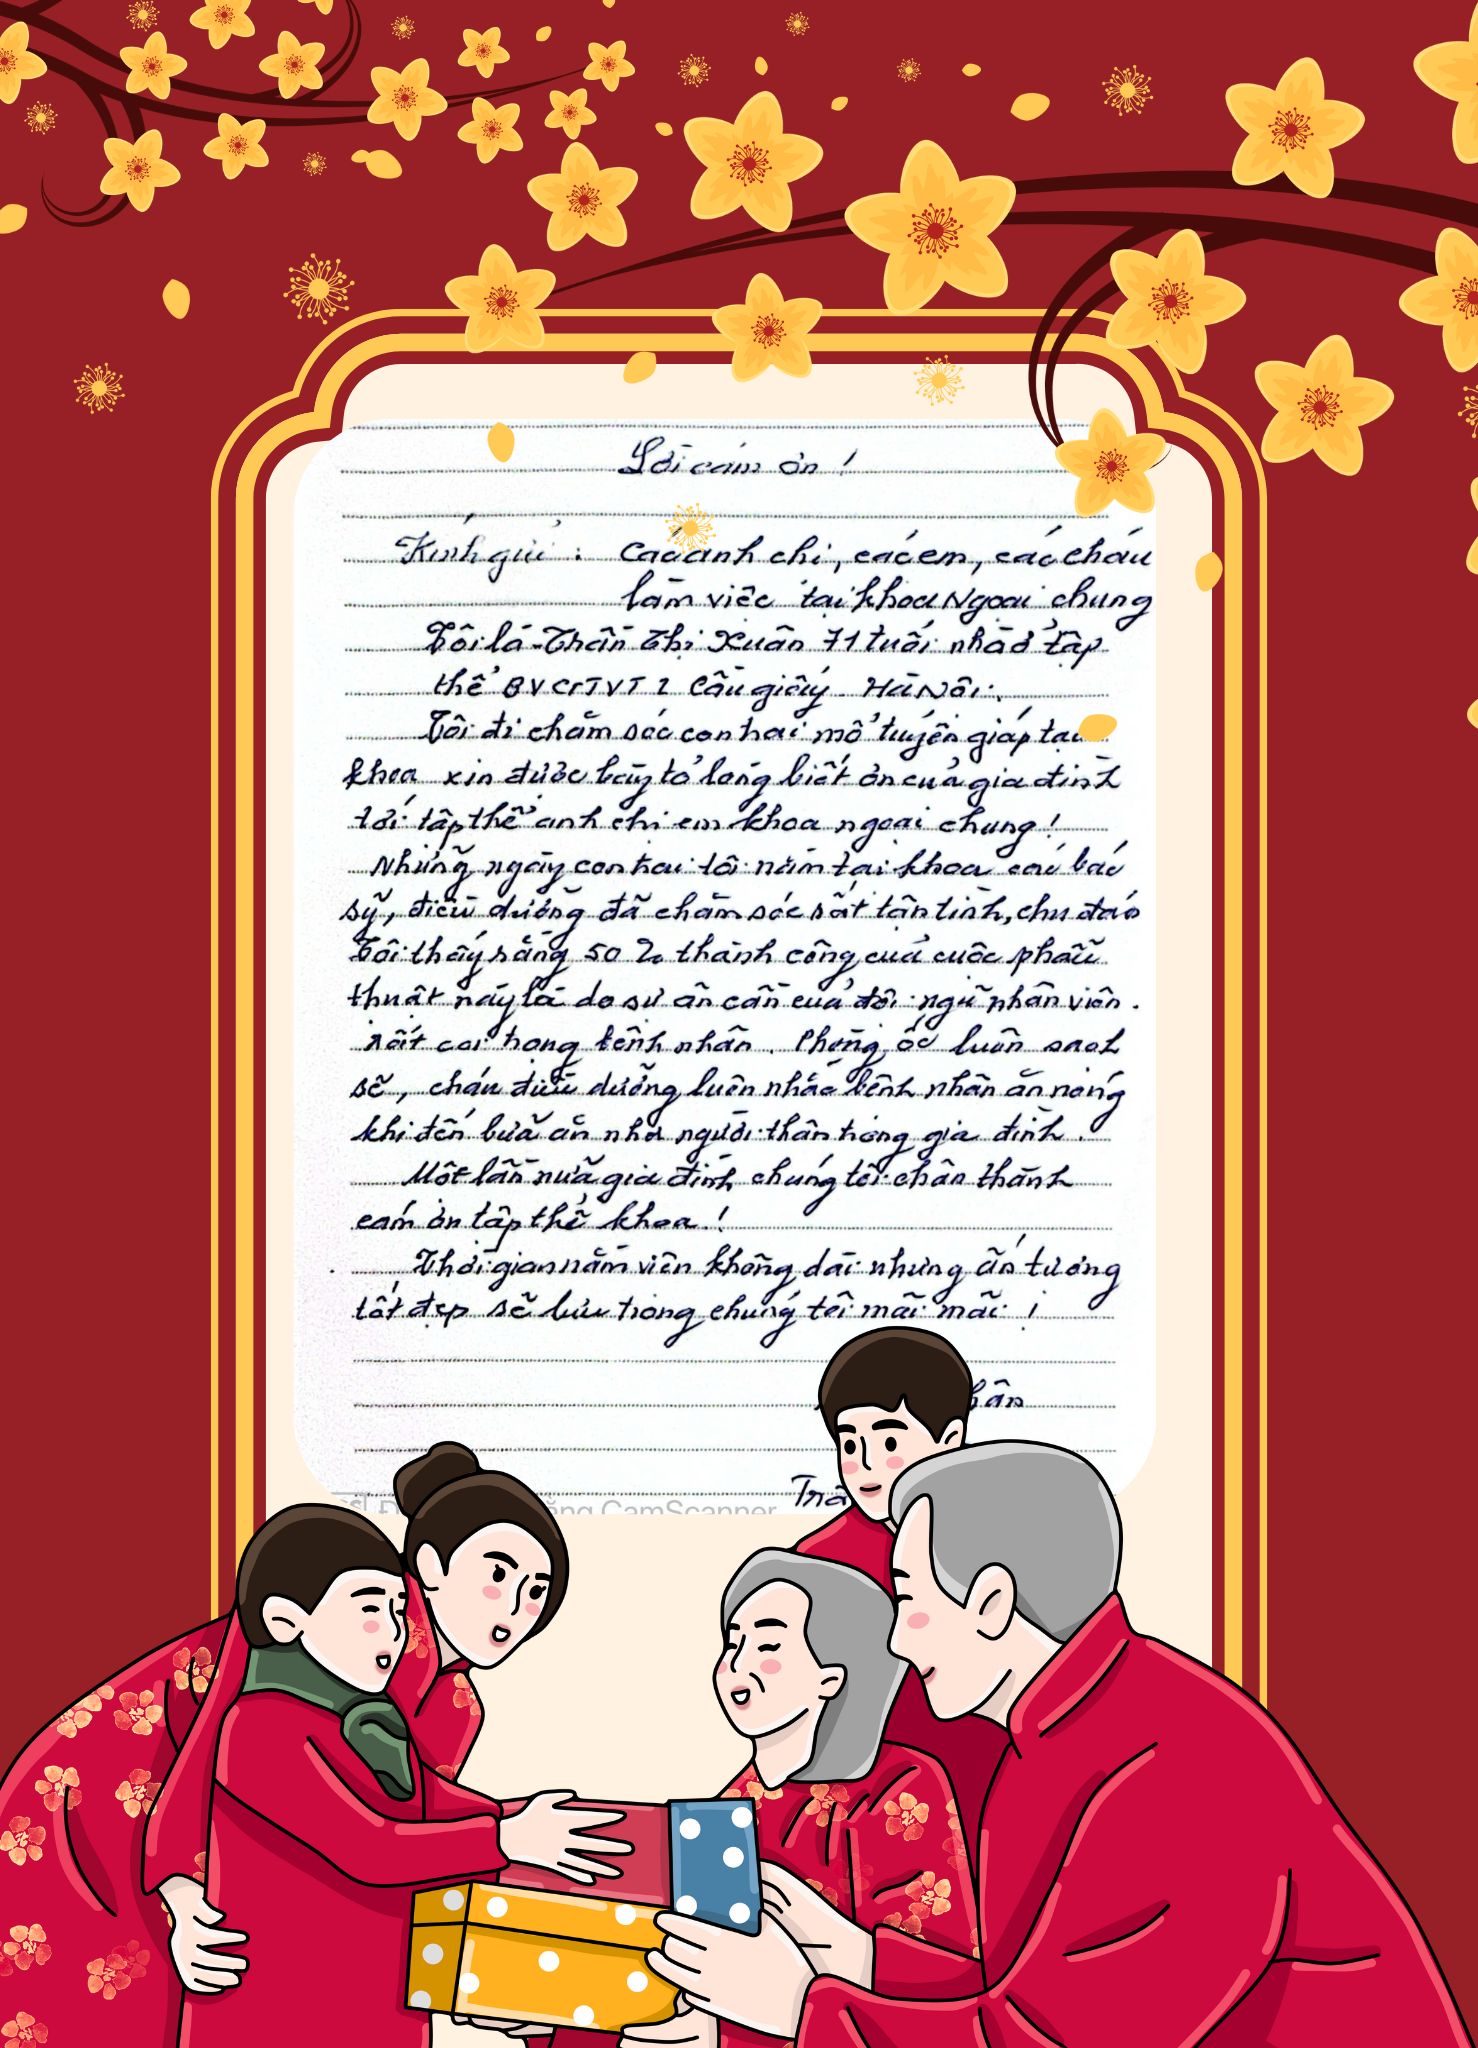 Lời cám ơn !
Kính gửi : Các anh chị, các em, các cháu
làm việc tại khoa Ngoại chung
Tôi là Trần Thị Xuân 71 tuổi nhà ở tập
thể BV GTVT 1 Cầu giấy Hà Nội.
Tôi đi chăm sóc con trai mổ tuyến giáp tại
khoa xin được bày tỏ lòng biết ơn của gia đình
tới tập thể anh chị em khoa ngoại chung !
Những ngày con trai tôi nằm tại khoa các bác
sỹ, điều dưỡng đã chăm sóc rất tận tình, chu đáo
Tôi thấy rằng 50 % thành công của cuộc phẫu
thuật này là do sự ân cần của đội ngũ nhân viên .
rất coi trọng bệnh nhân . Phòng ốc luôn sạch
sẽ, cháu điều dưỡng luôn nhắc bệnh nhân ăn nóng
khi đến bữa ăn như người thân trong gia đình .
Một lần nữa gia đình chúng tôi chân thành
cám ơn tập thể khoa !
Thời gian nằm viện không dài nhưng ấn tượng
tốt đẹp sẽ lưu trong chúng tôi mãi mãi !
CamScanner